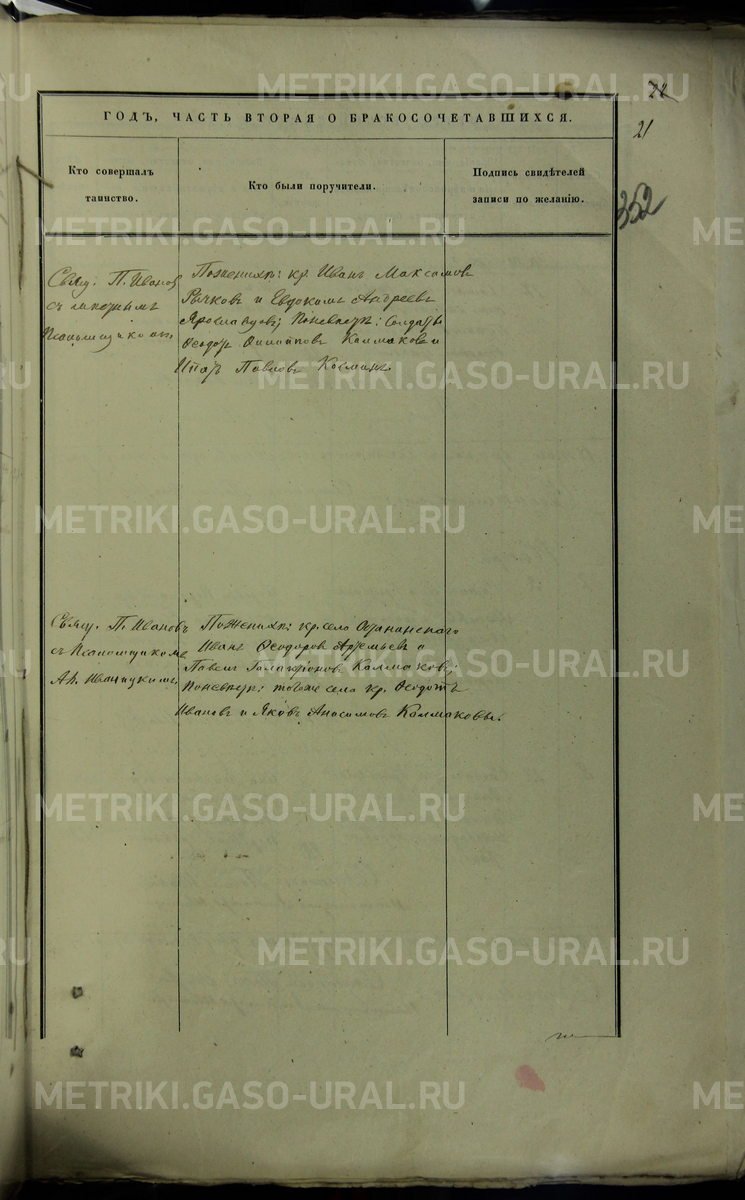 METRIKI.GASO-URAL.RU
22
21
352
ГОДЪ, ЧАСТЬ ВТОРАЯ О БРАКОСОЧЕТАВШИХСЯ.
Кто совершалъ
таинство.
Кто были поручители.
Подпись свидѣтелей
записи по желанію.
Свящ. П. Ивановъ
съ
Псаломщикомъ
По женихѣ: кр. Иванъ Максимовъ
Рычковъ и Евдокимъ Андреевъ
по невѣстѣ: Солдатъ
Ѳеодотъ Филипповъ Колмаковъ и
Павловъ
Свящ. П. Ивановъ
съ Псаломщикомъ
Ал. Иваницкимъ
По женихѣ: кр. села
Иванъ Ѳеодоровъ Артемьевъ и
Павелъ Колмаковъ;
по невѣстѣ: того же села кр. Ѳеодотъ
Ивановъ и Яковъ Анисимовъ Колмаковы.
METRIKI.GASO-URAL.RU
METRIKI.GASO-URAL.RU
METRIKI.GASO-URAL.RU
METRIKI.GASO-URAL.RU
METRIKI.GASO-URAL.RU
METRIKI.GASO-URAL.RU
METRIKI.GASO-URAL.RU